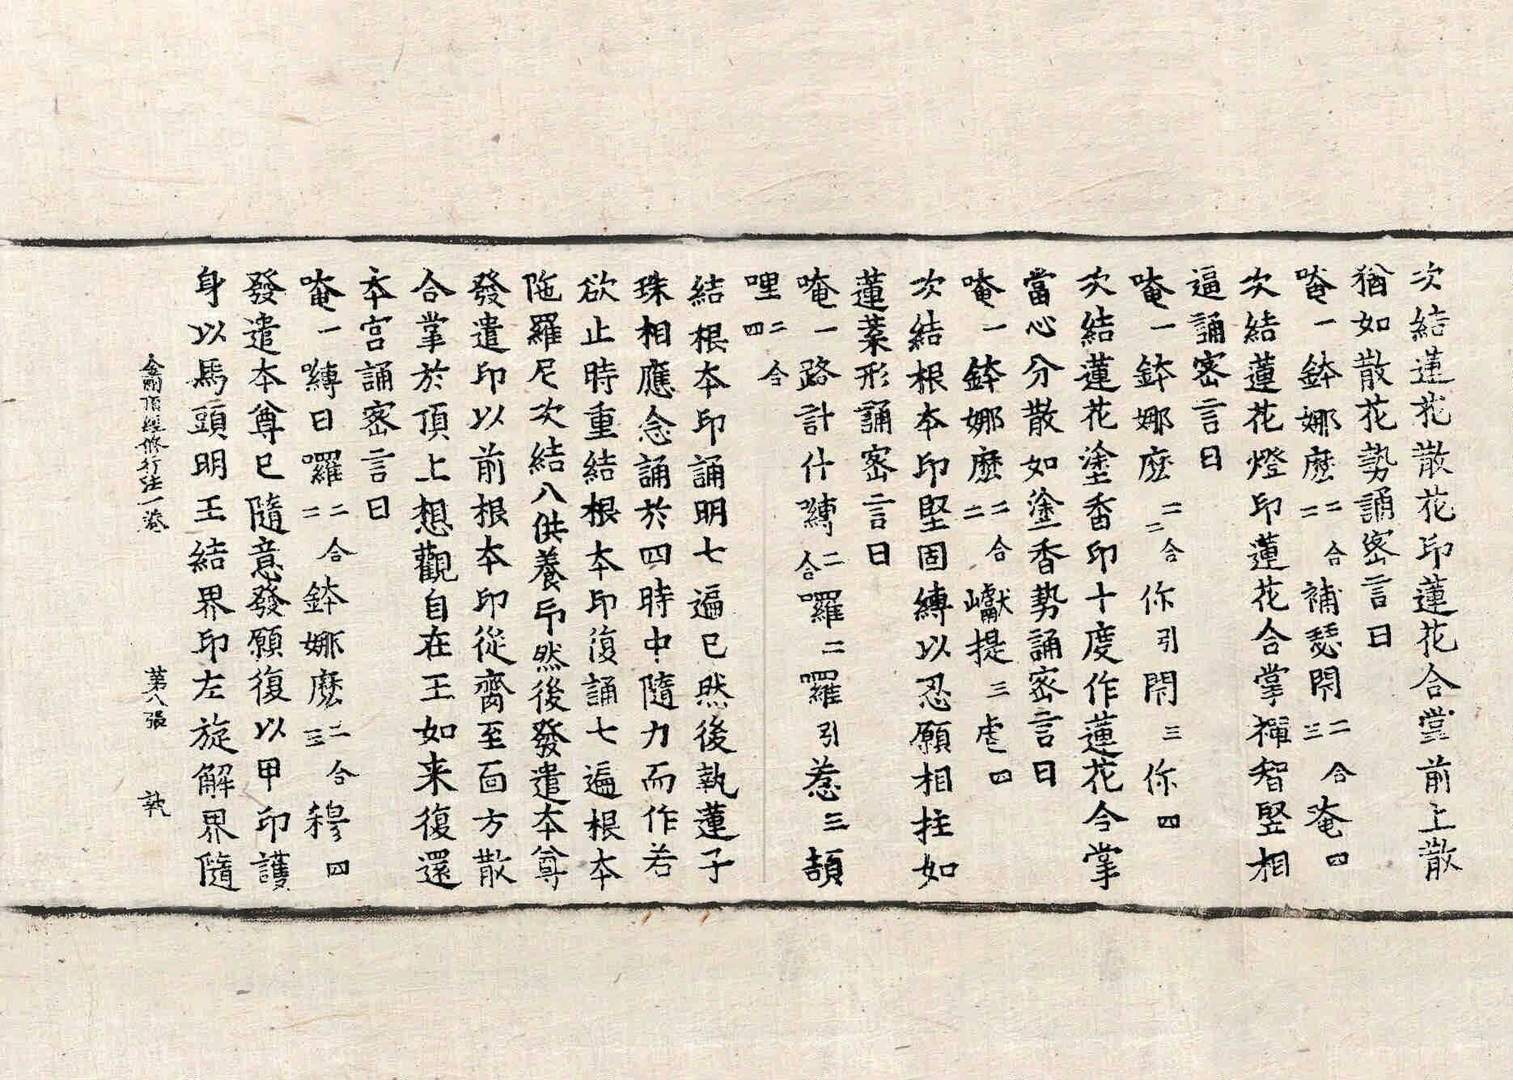 次結蓮花散花印蓮花合掌前上散
猶如散花勢誦密言曰
唵一鉢娜麼二合二補瑟閇二合三淹四
次結蓮花燈印蓮花合掌禪智竪相
逼誦密言曰
唵一鉢娜麽二合二你引閇三你四
次結蓮花塗香印十度作蓮花合掌
當心分散如塗香勢誦密言曰
唵一鉢娜麽二合二巘提三虐四
次結根本印堅固縛以忍願相拄如
蓮葉形誦密言曰
唵一路計什嚩二合羅二囉引惹三頡
哩二合四
結根本印誦明七遍已然後執蓮子
珠相應念誦於四時中隨力而作若
欲止時重結根本印復誦七遍根本
陁羅尼次結八供養印然後發遣本尊
發遣印以前根本印從齊至面方散
合掌於頂上想觀自在王如来復還
本宮誦密言曰
唵一嚩日囉二合二鉢娜麽二合三穆四
發遣本尊已隨意發願復以甲印護
身以馬頭明王結界印左旋解界隨
金剛頂經修行法一卷 第八張 執